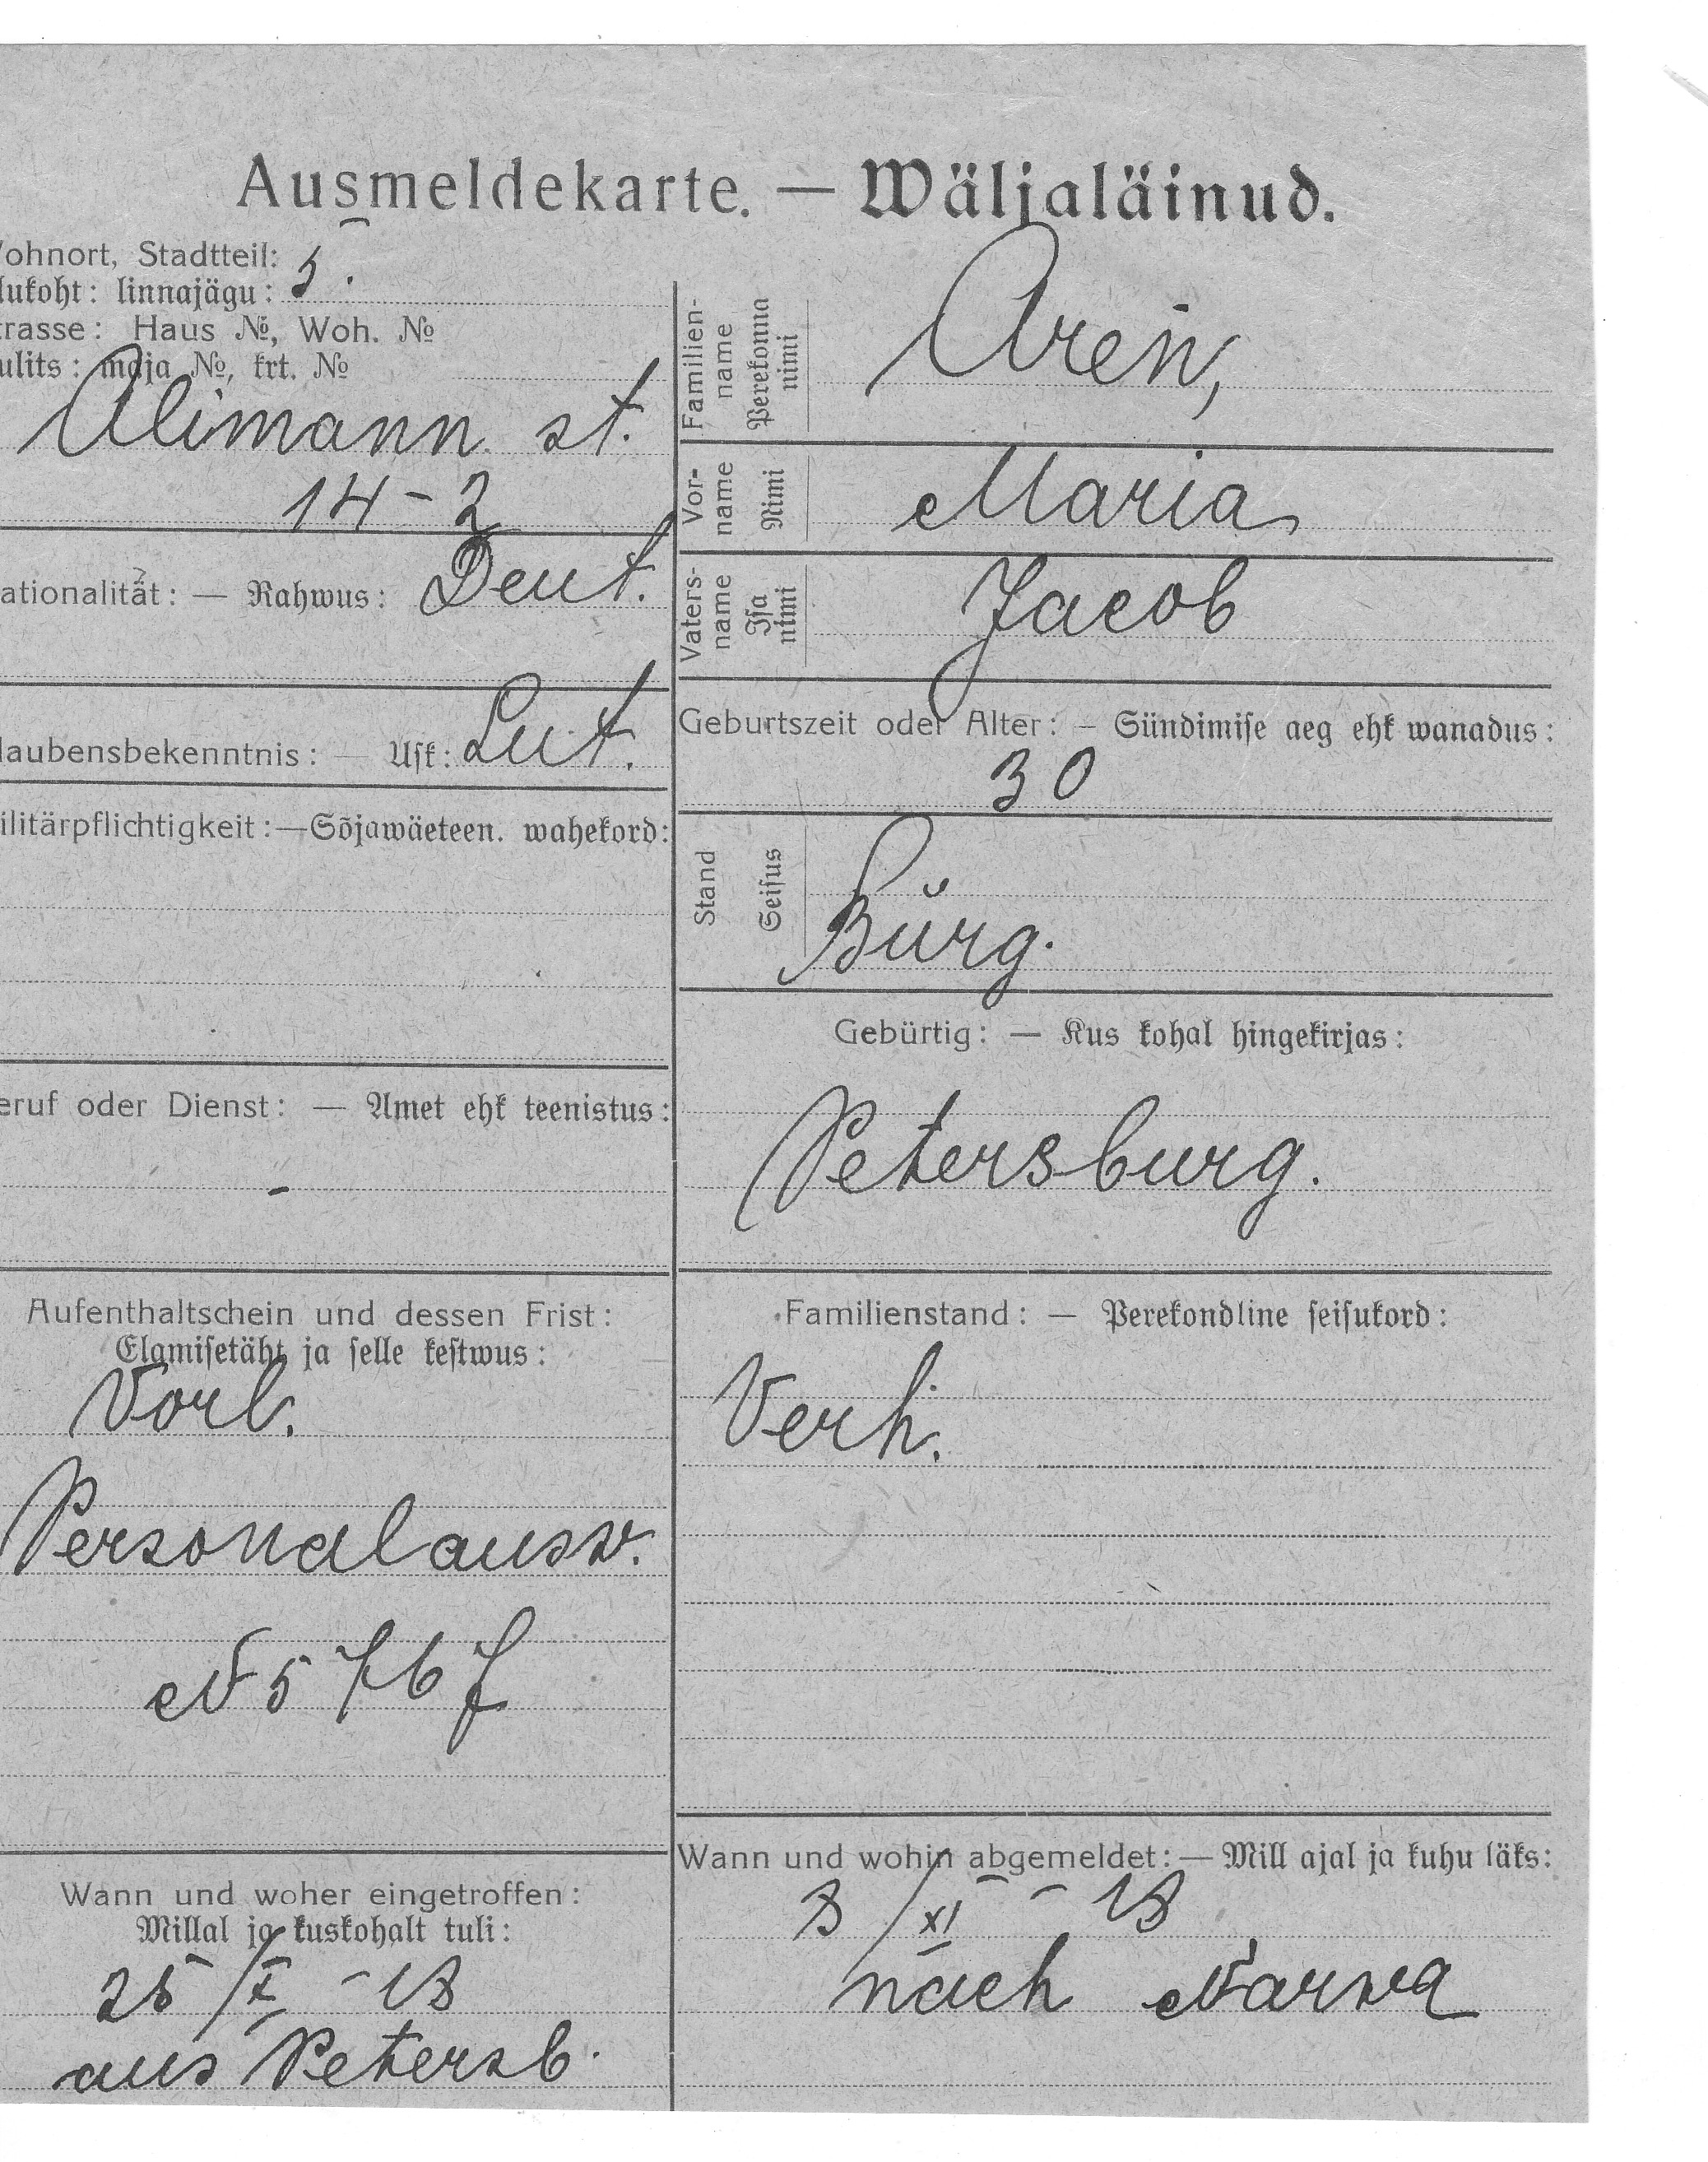 Ausmeldekarte. — Wäljaläinud.
ohnort, Stadtteil: 5.
lukoht: linnajägu:
rasse: Haus №, Woh. №
ulits: maja №, krt. №
Alimann st.
14-2
ationalität: — Rahwus: Deut.
laubensbekenntnis: — Usk: Lut.
ilitärpflichtigkeit:—Sõjawäeteen. wahekord:
eruf oder Dienst: — Amet ehk teenistus:
-
Aufenthaltschein und dessen Frist:
Elamisetäht ja selle kestwus:
Vorl.
Personalausw.
N 5767
Wann und woher eingetroffen:
Millal ja kuskohalt tuli:
25/X -18
aus Petersb.
Familien-
name
Perekonna
nimi
Aren,
Vor-
name
Nimi
Maria
Vaters-
name
Isa
nimi
Jacob
Geburtszeit oder Alter: — Sündimise aeg ehk wanadus:
30
Stand
Seisus
Bürg.
Gebürtig: — Kus kohal hingekirjas:
Petersburg.
Familienstand: — Perekondline seisukord:
Verh.
Wann und wohin abgemeldet:— Mill ajal ja kuhu läks:
8/XI - 18
nach Narwa